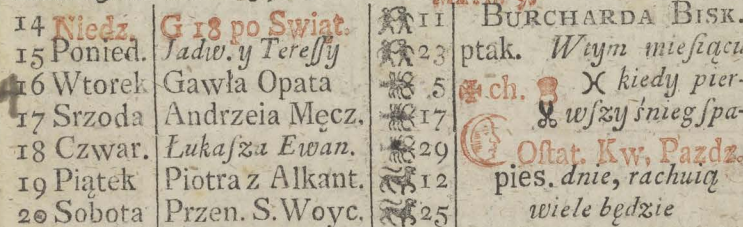 14 Niedz. G 18 po Swiąt. 11 BURCHARDA BISK.
15 Ponied. Jadw. y Tereſſy 23 ptak. Wtym mieſiącu
16 Wtorek Gawła Opata 5 ch. kiedy pier-
17 Srzoda Andrzeia Męcz. 17 wſzy śnieg ſpa-
18 Czwar. Łukaſza Ewan. 29 Oſtat. Kw. Pazdz.
19 Piątek Piotra z Alkant. 12 pies. dnie, rachuią
20 Sobota Przen. S. Woyc. 25 wiele będzie